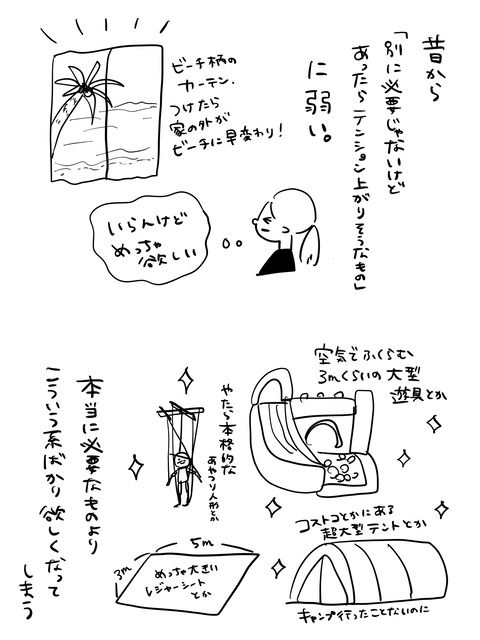 昔から
「別に必要じゃないけど
あったらテンション上がりそうなもの」
に弱い。
ビーチ柄の
カーテン.
つけたら
家の外が
ビーチに早変わり!
いらんけど
めっちゃ
欲しい
空気でふくらむ
3mくらいの大型
遊具とか
やたら本格的な
あやつり人形とか
コストコとかにある
超大型テントとか
キャンプ行ったことないのに
5m
3m
めっちゃ大きい
レジャーシート
とか
本当に必要なものより
こういう系ばかり欲しくなって
しまう